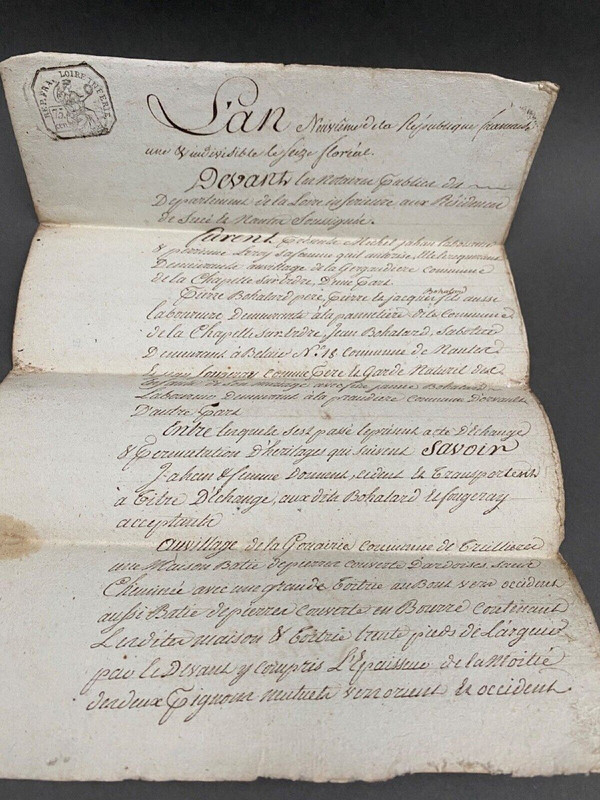 REP. FRA. LOIRE INFERIE.
75
L'an Neuvième de la République française
une & indivisible le seize floréal.
Devant les Notaires Publics du
Département de la Loire inférieure aux Résidences
de Sucé & Nantes Soussignés.
Furent Présents Michel jahan laboureur
& perrinne Leroy sa femme qu'il autorise
Demeurants au village de la Commune
de la Chapelle Sur erdre, D'une Part
Pierre Bohalard père, pierre & jacques Bohalard fils aussi
laboureurs demeurants à la Commune
de la Chapelle Sur erdre, Jean Bohalard, Sabotier
Demeurant à N° 18 commune de Nantes
& comme Père & Garde Naturel des
Enfants de son mariage avec feue jeanne Bohalard
Laboureur demeurant à la commune d'orvault
D'autre Part
Entre lesquels s'est passé le présent acte d'échange
& Permutation D'héritages qui suivent Savoir
Jahan & femme Donnent, cèdent & Transportent
à Titre D'échange, aux dits Bohalard & fougeray
acceptants
Au village de la commune de Treillieres
une Maison Batie de pierres couverte D'ardoises, sans
Cheminée avec une grande au Bout vers occident
aussi Batie de pierres couverte en Bourre contenant
Lesdits maison & trente pieds de Largeur
par le Devant y compris L'Epaisseur de la Moitié
des deux Pignons mutuels vers orient & occident